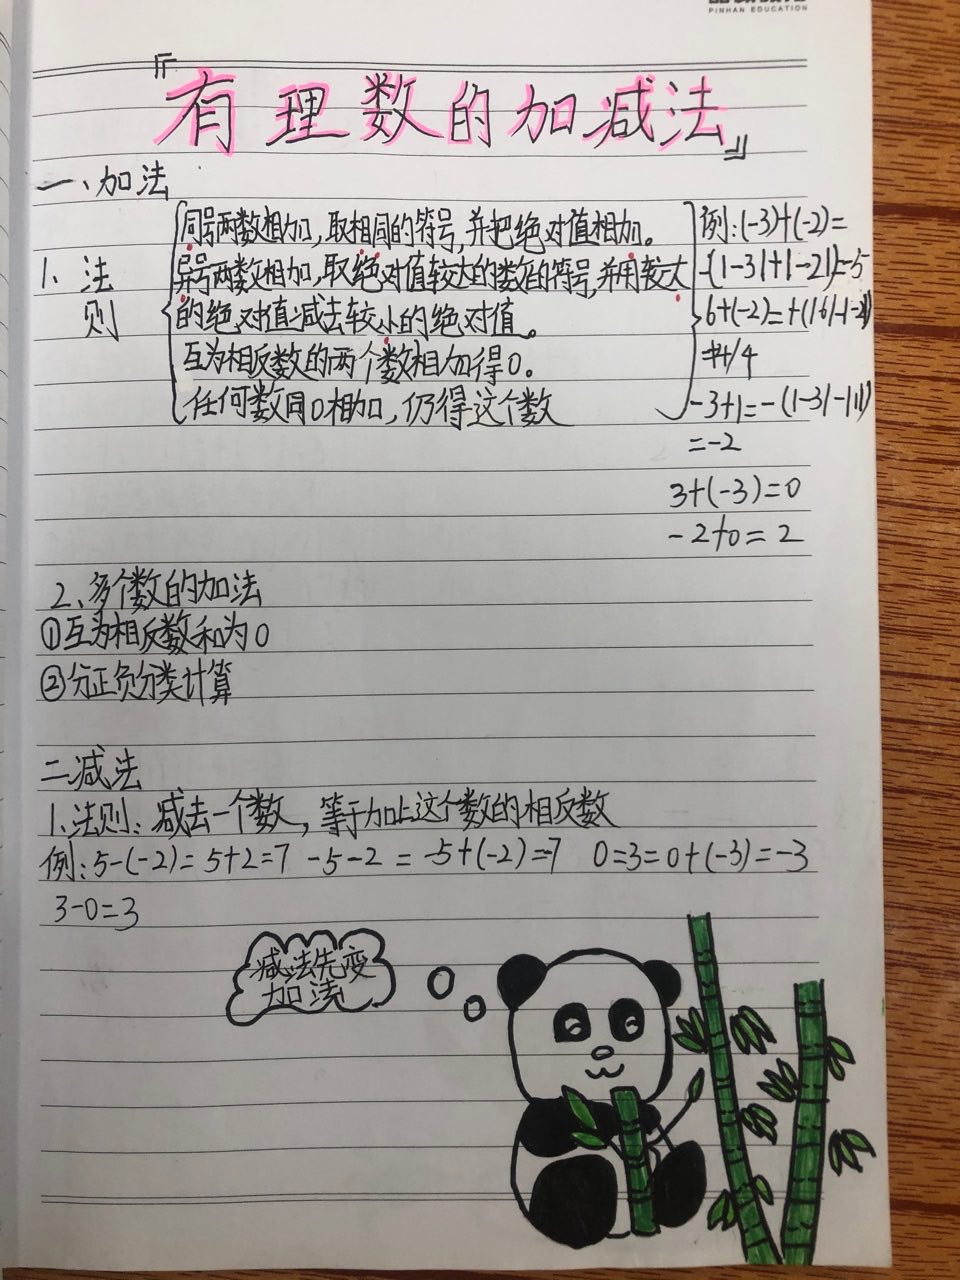 PINHAN EDUCATION
『有理数的加减法』
一、加法
1、法则
同号两数相加,取相同的符号,并把绝对值相加。
异号两数相加,取绝对值较大的数的符号,并用较大
的绝对值减去较小的绝对值。
互为相反数的两个数相加得0。
任何数同0相加,仍得这个数
例:(-3)+(-2)=
-(|-3|+|-2|)=-5
6+(-2)=+(|6|-|-2|)
=4
-3+1=-(|-3|-|1|)
=-2
3+(-3)=0
-2+0=2
2、多个数的加法
①互为相反数和为0
②分正负分类计算
二减法
1、法则:减去一个数,等于加上这个数的相反数
例:5-(-2)=5+2=7 -5-2=-5+(-2)=-7 0=3=0+(-3)=-3
3-0=3
减法先变
加法